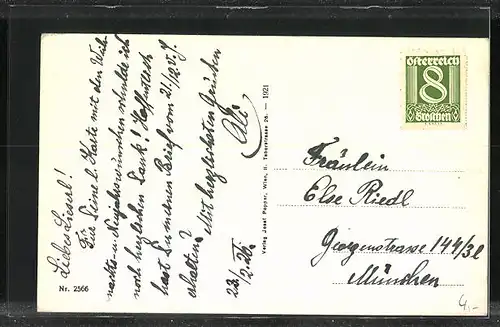 Liebes Lieserl!
Für Deine l. Karte mit den Weih-
nachts- u. Neujahrswünschen schulde ich
noch herzlichen Dank! Hoffentlich
hast Du meinen Brief vom 21./12. v. J.
erhalten? Mit herzlichsten Grüßen
Nr. 2566
Verlag Josef Popper, Wien, II. Taborstrasse 26. — 1921
österreich
8
Groschen
Fräulein
Else Riedl
Georgenstrasse 144/3l
München
4.-